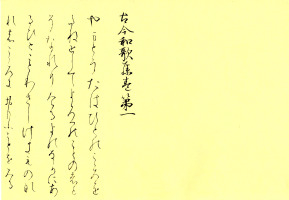 古今和歌集巻第一
やまとうたはひとのこゝろを
たねとしてよろつのことのはと
そなれりけるよのなかにあ
るひとことわさしけきものな
れはこゝろにおもふことをみる